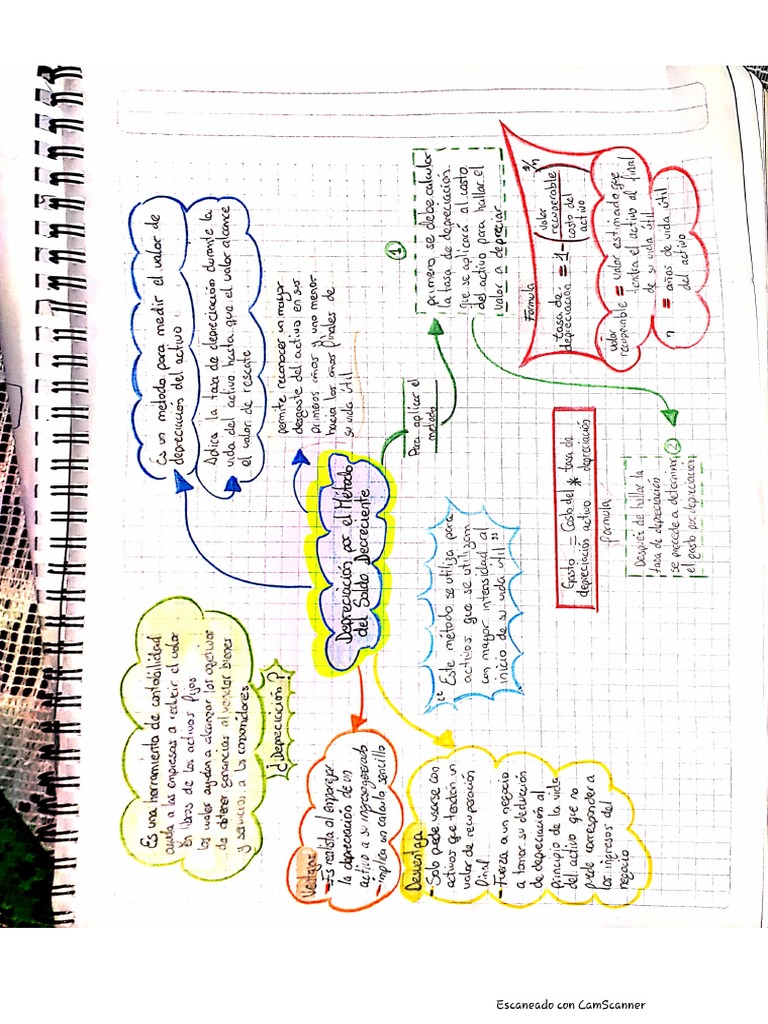 Es una herramienta de contabilidad
ayuda a las empresas a reducir el valor
en libros de los activos fijos
los cuales ayudan a alcanzar los objetivos
de obtener ganancias al vender bienes
y servicios a los consumidores
¿Depreciación?
Es un método para medir el valor de
depreciación del activo
Aplica la tasa de depreciación durante la
vida del activo hasta que el valor alcance
el valor de rescate
permite reconocer un mayor
desgaste del activo en sus
primeros años y uno menor
hacia los años finales de
su vida útil
Depreciación por el Método
del Saldo Decreciente
Ventajas
- Es realista al emparejar
la depreciación de un
activo a su ingreso generado
- implica un calculo sencillo
Desventaja
- Solo puede usarse con
activos que tendrán un
valor de recuperación
final
- Fuerza a un negocio
a tomar su deducción
de depreciación al
principio de la vida
del activo que no
puede corresponder a
los ingresos del
negocio
"Este método se utiliza para
activos que se utilizam
con mayor intensidad al
inicio de su vida útil"
Para aplicar el
metodo
1
primero se debe calcular
la tasa de depreciación
que se aplicará al costo
del activo para hallar el
valor a depreciar
Formula
tasa de depreciación = 1 - (valor recuperable / costo del activo) 1/n
valor recuperable = valor estimado que
tendra el activo al final
de su vida útil
n = años de vida útil
del activo
2
Después de hallar la
tasa de depreciación
se procede a determinar
el gasto por depreciación
Formula
Gasto depreciación = Costo del activo * tasa de depreciación
Escaneado con CamScanner